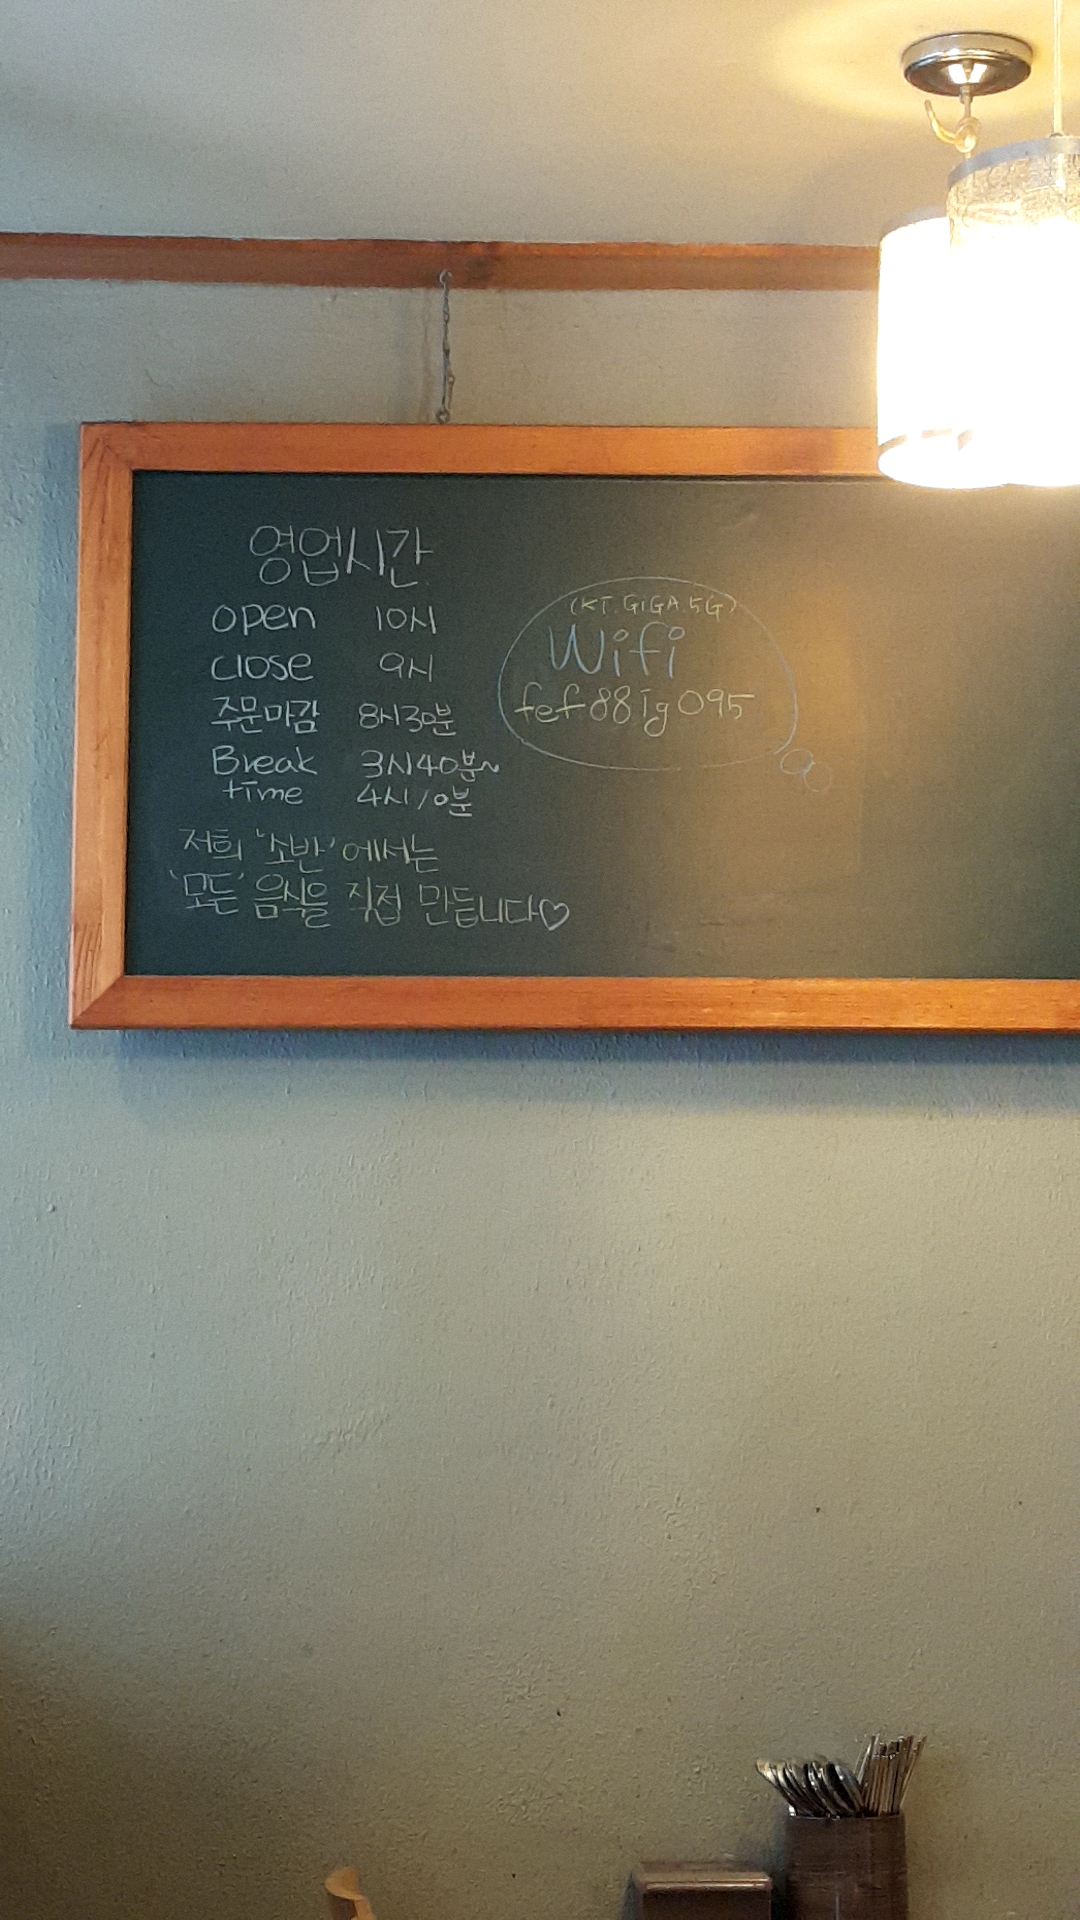 영업시간
open 10시
close 9시
주문마감 8시30분
Break 3시40분~
time 4시10분
저희 '소반'에서는
'모든' 음식을 직접 만듭니다♡
(KT.GiGA.5G)
Wifi
fef88Ig095